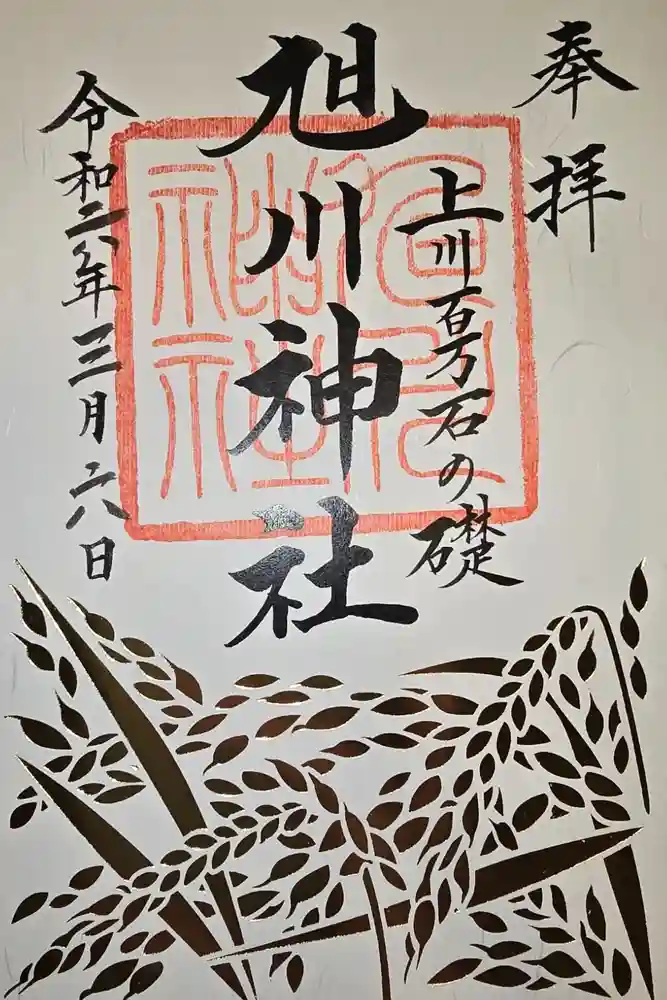 奉拝
上川百万石の礎
旭川神社
令和六年三月六日